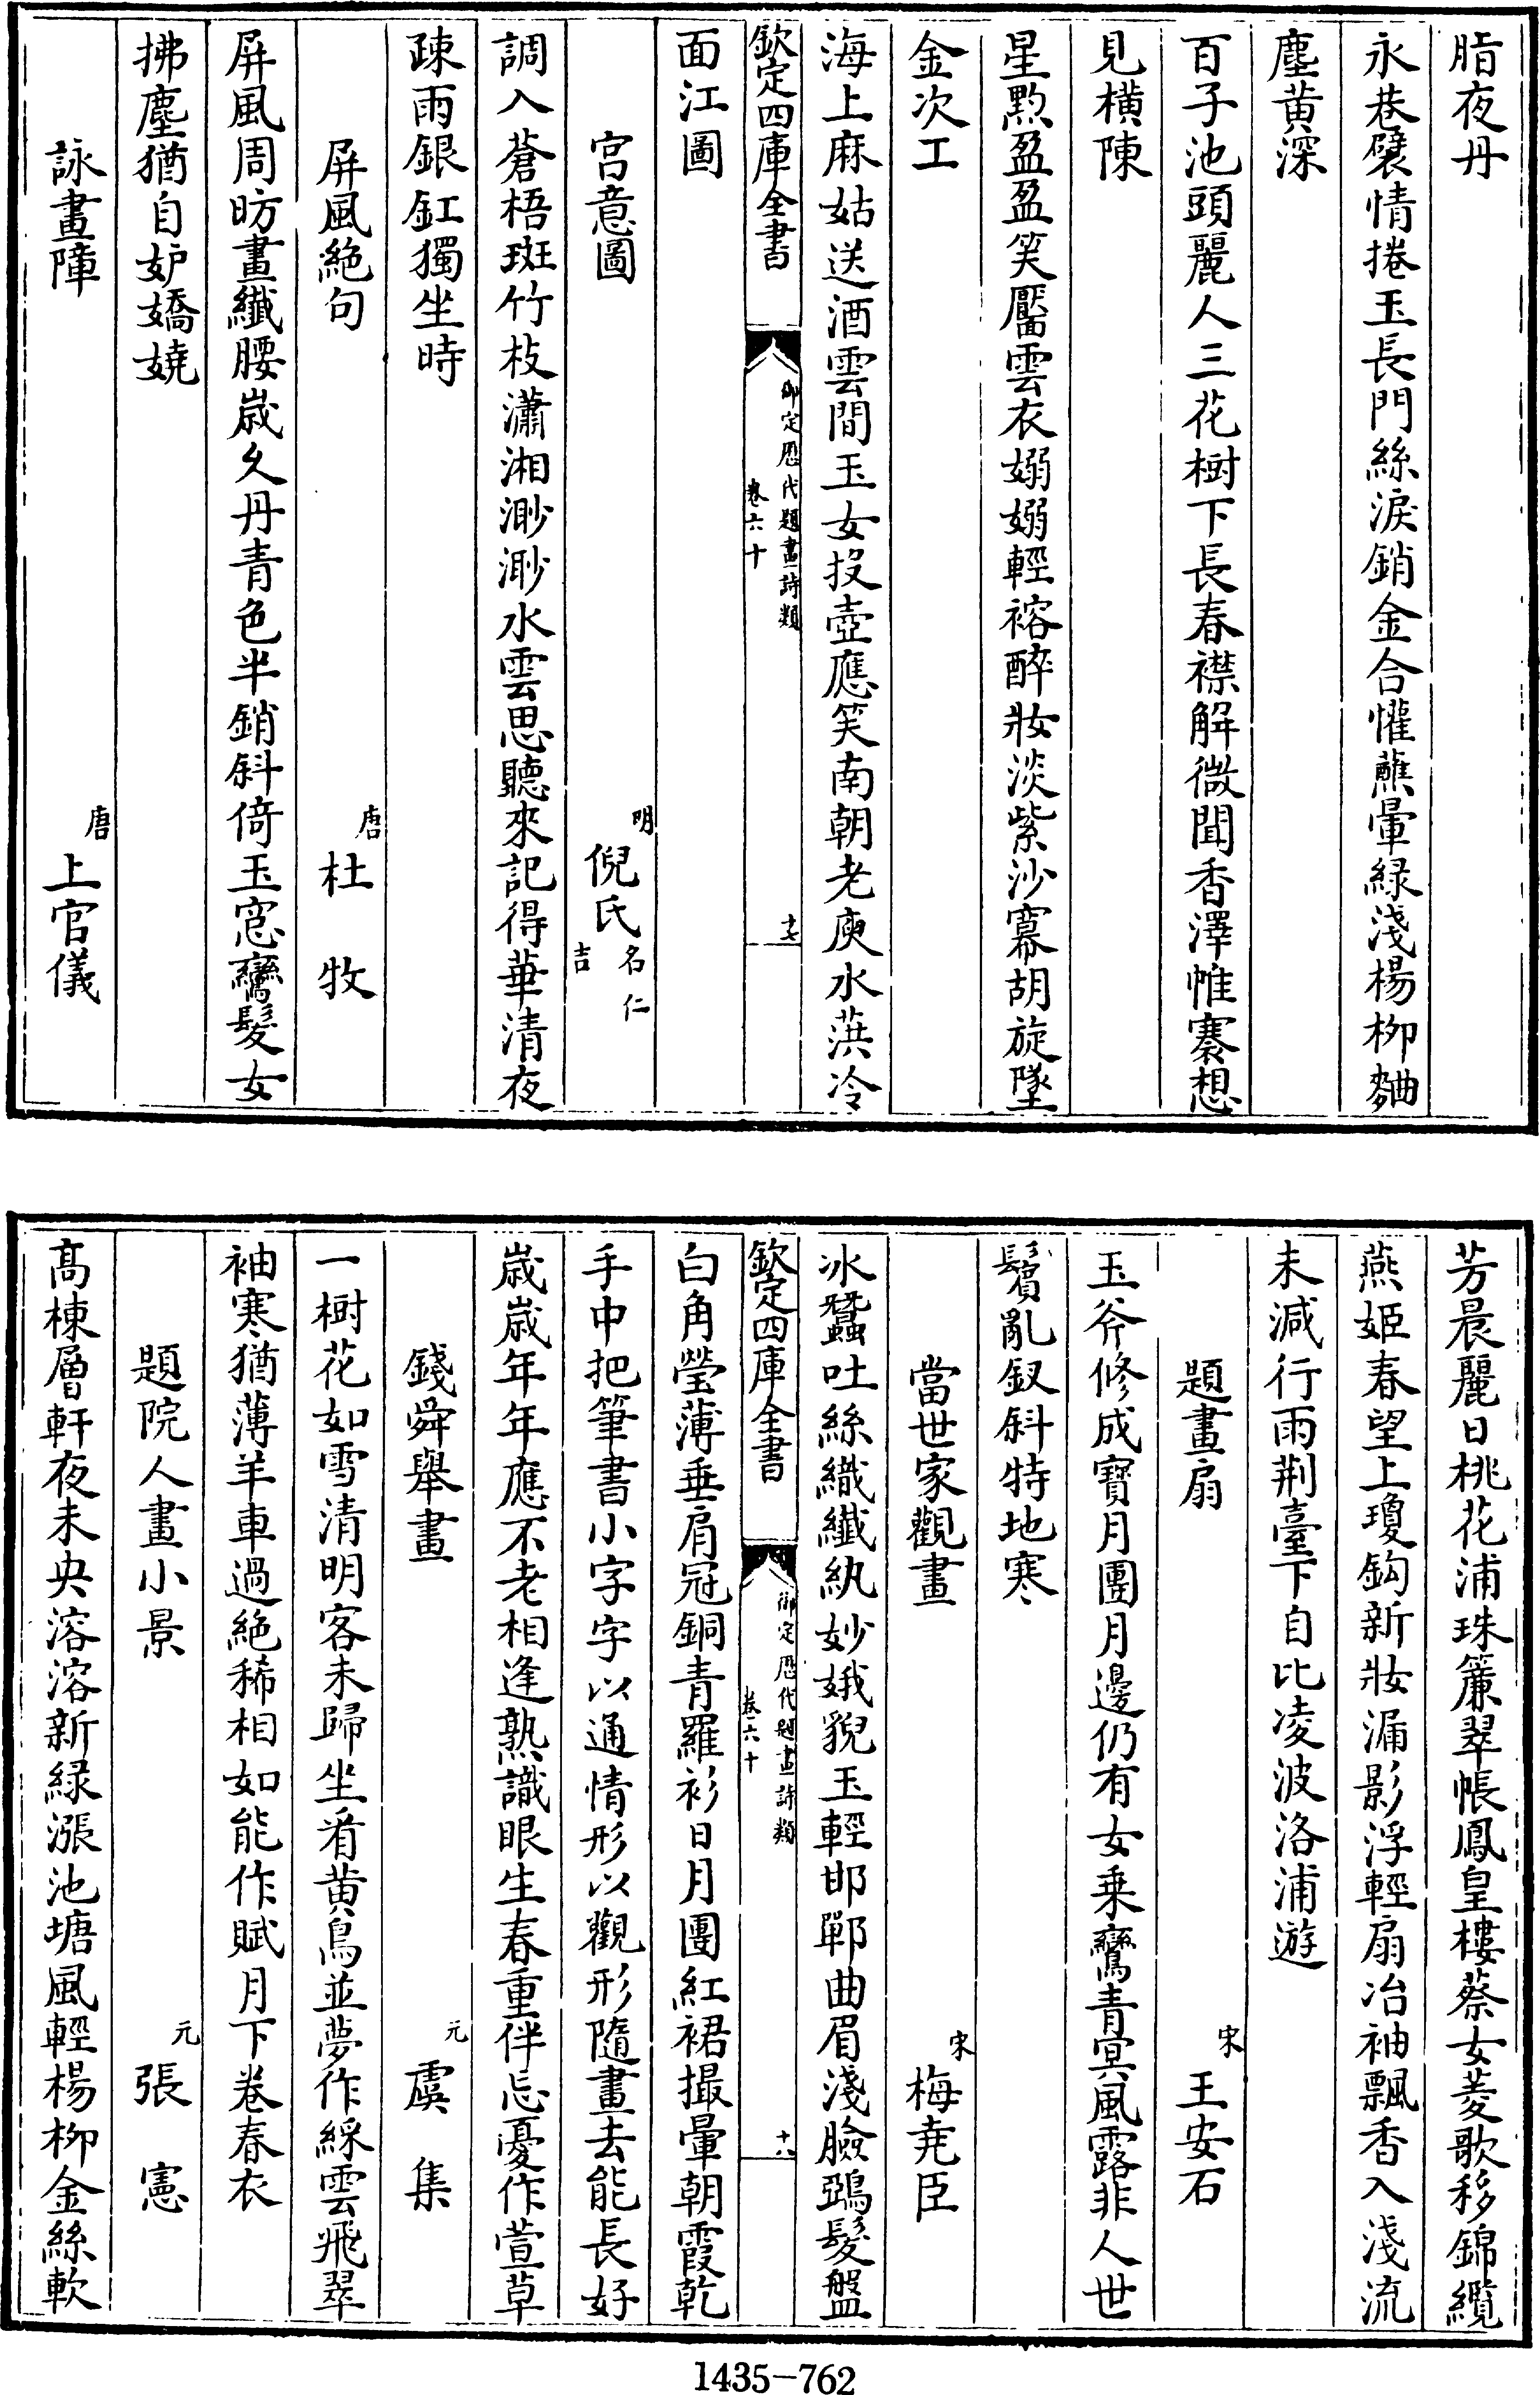 脂夜丹
永巷襞情捲玉長門絲淚銷金合懽蘸暈緑淺楊柳麯
塵黄深
百子池頭麗人三花樹下長春襟解微聞香澤帷褰想
見橫陳
星㸃盈盈笑靨雲衣嫋嫋輕褣醉妝淡紫沙冪胡旋墜
金次工
海上麻姑送酒雲間玉女投壺應笑南朝老庾水葓冷
欽定四庫全書
御定歴代題畫詩類
卷六十
十七
面江圖
宫意圖
明
倪氏
名仁
吉
調入蒼梧斑竹枝瀟湘渺渺水雲思聽來記得華清夜
疎雨銀釭獨坐時
屏風絶句
唐
杜牧
屏風周昉畫纖腰嵗久丹青色半銷斜倚玉窓鸞髮女
拂塵猶自妒嬌嬈
詠畫障
唐
上官儀
芳晨麗日桃花浦珠簾翠帳鳳皇樓蔡女菱歌移錦纜
燕姬春望上瓊鈎新妝漏影浮輕扇冶袖飄香入淺流
未減行雨荆臺下自比凌波洛浦遊
題畫扇
宋
王安石
玉斧修成寳月團月邊仍有女乗鸞青冥風露非人世
鬢亂釵斜特地寒
當世家觀畫
宋
梅堯臣
冰蠶吐絲織纎紈妙娥貌玉輕邯鄲曲眉淺臉鵶髮盤
欽定四庫全書
御定歴代題畫詩類
卷六十
十八
白角瑩薄垂肩冠銅青羅衫日月團紅裙撮暈朝霞乾
手中把筆書小字字以通情形以觀形隨畫去能長好
嵗嵗年年應不老相逢熟識眼生春重伴忘憂作萱草
錢舜舉畫
元
虞集
一樹花如雪清明客未歸坐㸔黄鳥並夢作綵雲飛翠
袖寒猶薄羊車過絶稀相如能作賦月下卷春衣
題院人畫小景
元
張憲
髙棟層軒夜未央溶溶新緑漲池塘風輕楊柳金絲軟
1435-762